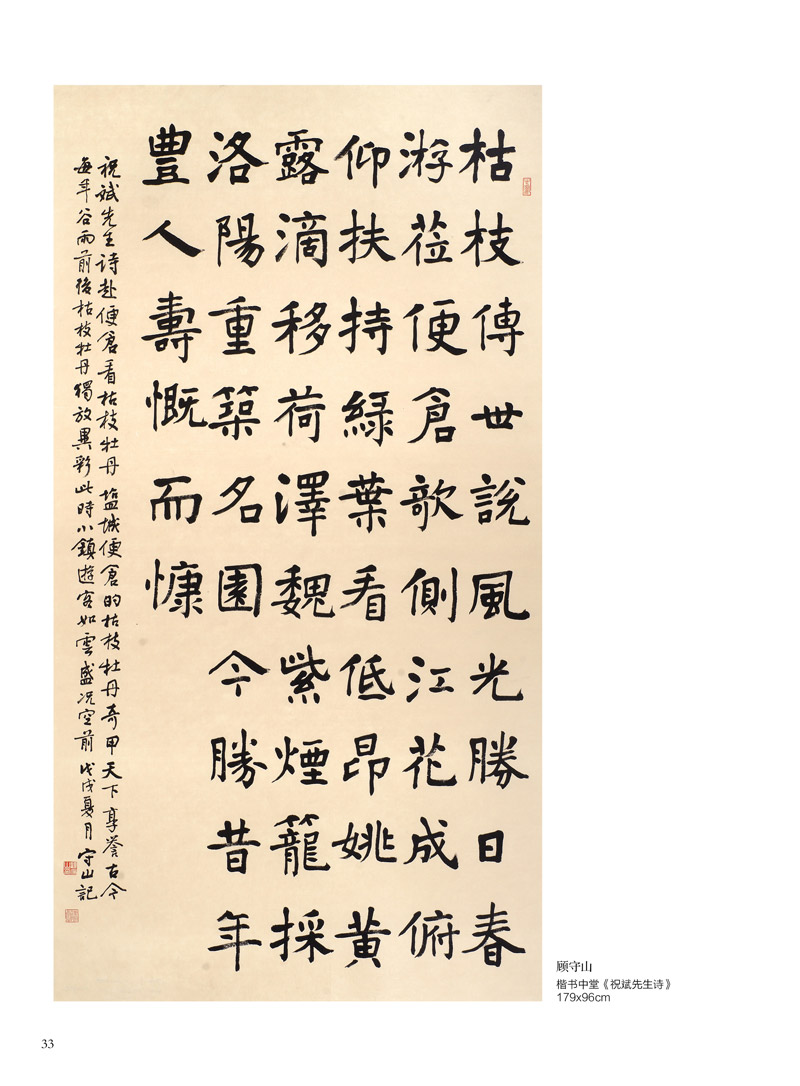 枯枝傳世説風光勝日春
游莅便倉歌側江花成俯
仰扶持綠葉看低昂姚黄
露滴移荷澤魏紫煙籠採
洛陽重築名園今勝昔年
豊人壽慨而慷
祝斌先生诗赴便倉看枯枝牡丹 塩城便倉的枯枝牡丹奇甲天下享誉古今
每年谷雨前後枯枝牡丹獨放異彩此時小鎮遊客如雲盛况空前 戊戌夏月 守山記
顾守山
楷书中堂《祝斌先生诗》
179x96cm
33